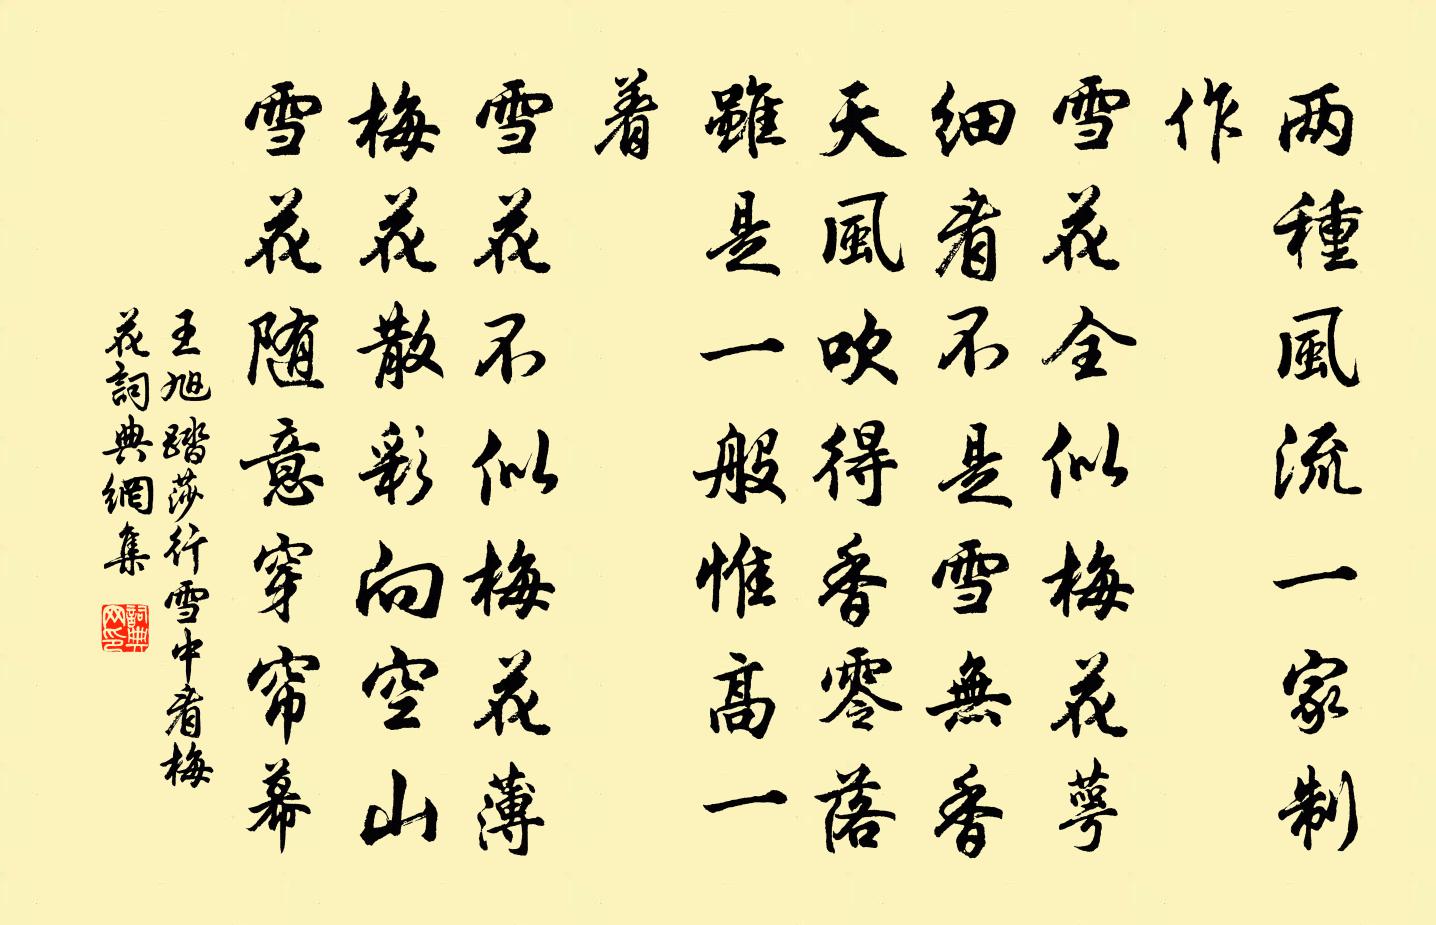 两種風流一家制
作
雪花全似梅花萼
细看不是雪無香
天風吹得香零落
雖是一般惟高一
着
雪花不似梅花薄
梅花散彩向空山
雪花随意穿帘幕
王旭踏莎行雪中看梅
花詞典網集
詞典网印